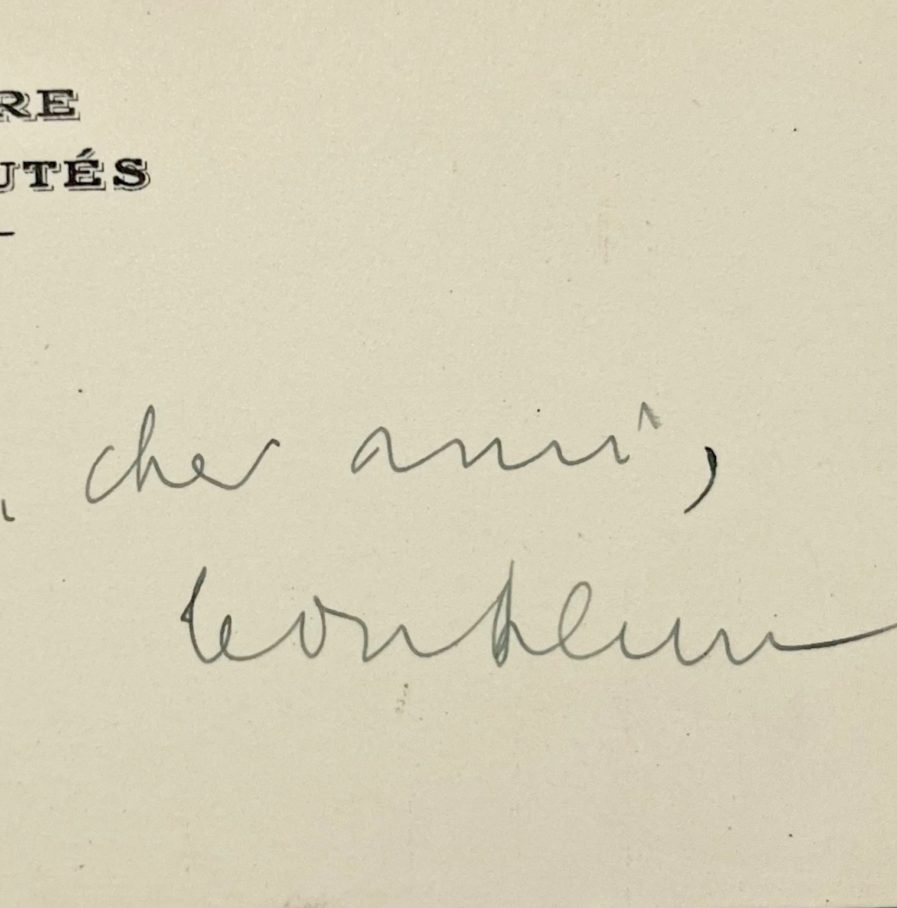 RE
UTÉS
, cher ami,
Léon Blum